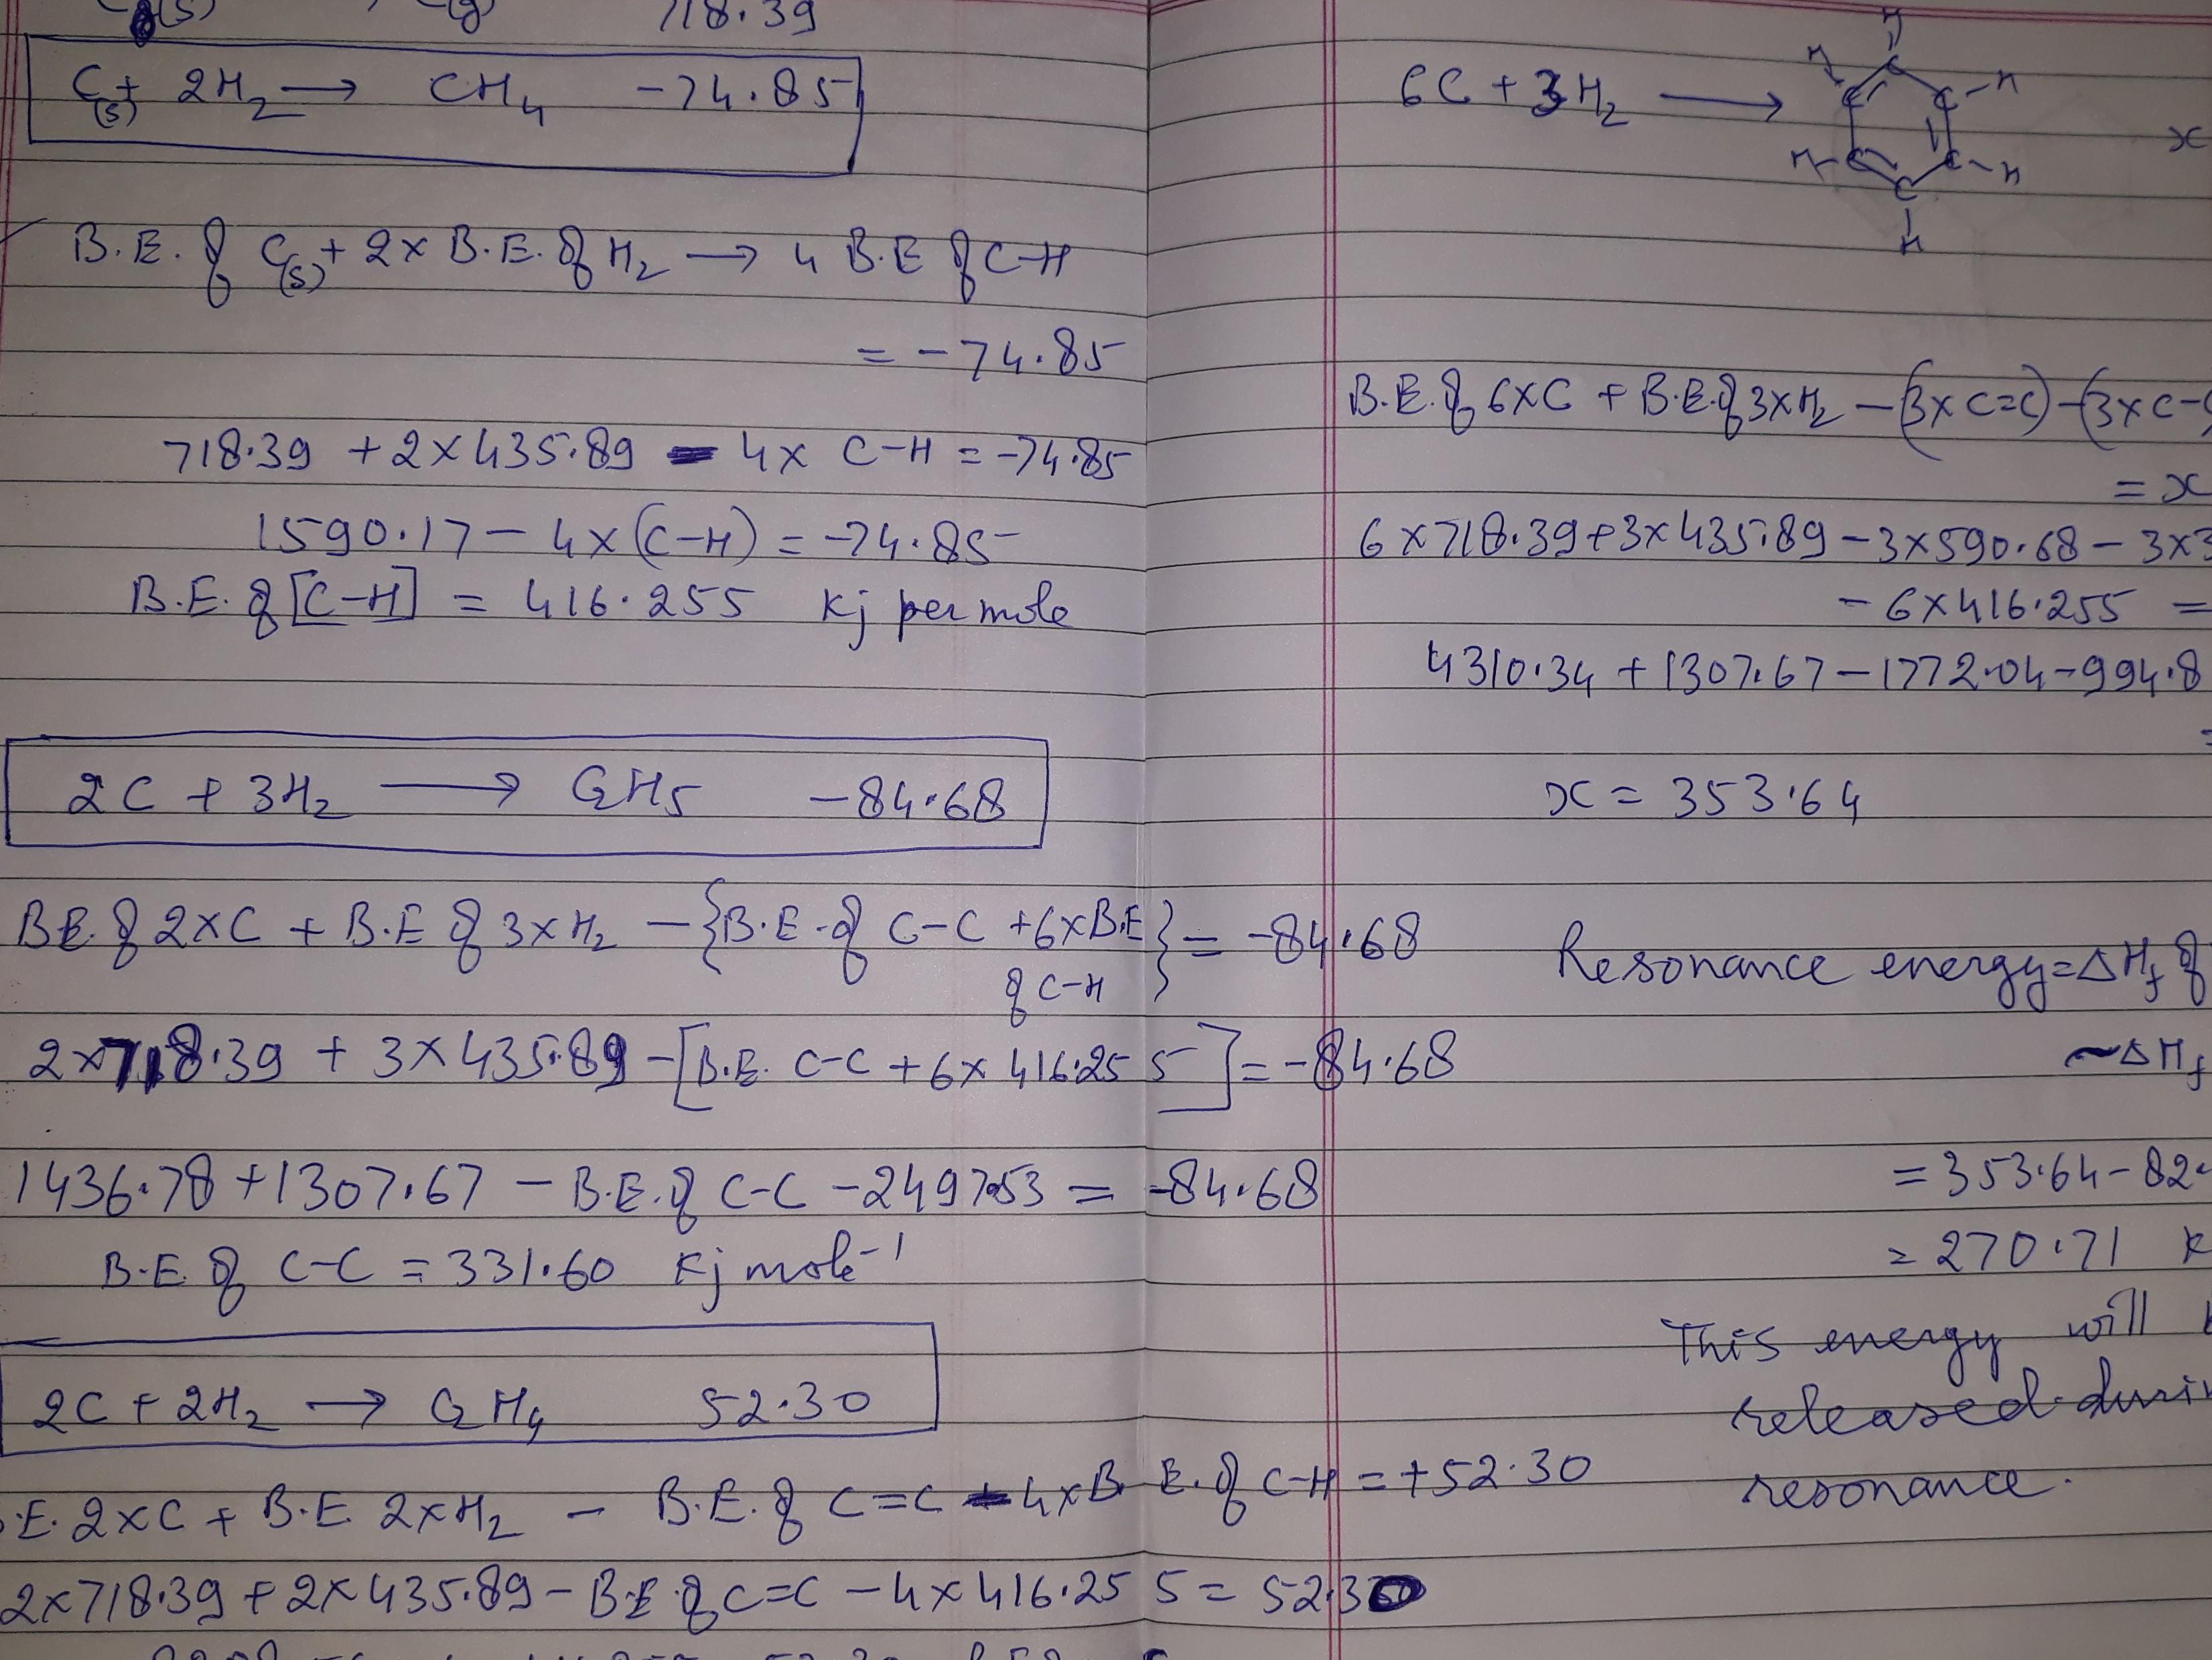 718.39
C(s) + 2H2 → CH4 -74.85
B.E. of C(s) + 2x B.E. of H2 → 4 B.E of C-H
= -74.85
718.39 + 2x435.89 - 4x C-H = -74.85
1590.17 - 4x(C-H) = -74.85
B.E. of [C-H] = 416.255 Kj per mole
2C + 3H2 → C2H5 -84.68
B.E. of 2xC + B.E of 3xH2 - {B.E. of C-C + 6xB.E of C-H} = -84.68
2x718.39 + 3x435.89 - [B.E. C-C + 6x 416.255] = -84.68
1436.78 + 1307.67 - B.E. of C-C - 2497.53 = -84.68
B.E. of C-C = 331.60 Kj mole-1
2C + 2H2 → C2H4 52.30
.E. 2xC + B.E. 2xH2 - B.E. of C=C - 4xB.E. of C-H = +52.30
2x718.39 + 2x435.89 - B.E of C=C - 4x416.255 = 52.30
6C + 3H2 →
H
H C H
C C
x
H-C C-H
C
H
B.E. of 6xC + B.E. of 3xH2 - (3xC=C) - (3xC-C
= x
6x718.39 + 3x435.89 - 3x590.68 - 3x3
- 6x416.255 =
4310.34 + 1307.67 - 1772.04 - 994.8
x = 353.64
Resonance energy = ΔHf of
~ΔHf
= 353.64 - 82.
= 270.71 K
This energy will
released duri
resonance.